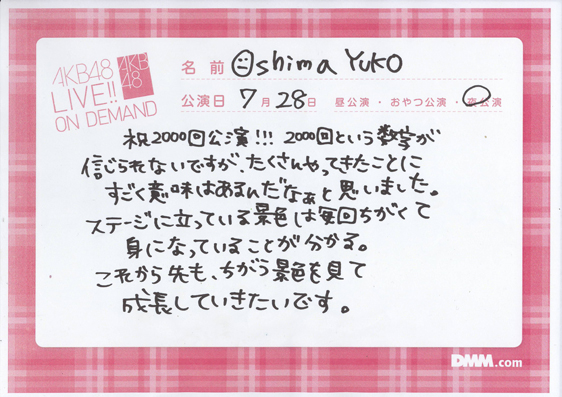 AKB48
LIVE!!
ON DEMAND
AKB
48
名前 Oshima Yuko
公演日 7月28日 昼公演・おやつ公演・夜公演
祝2000回公演!!! 2000回という数字が
信じられないですが、たくさんやってきたことに
すごく意味はあるんだなぁと思いました。
ステージに立っている景色は毎回ちがくて
身になっていることが分かる。
これから先も、ちがう景色を見て
成長していきたいです。
DMM.com